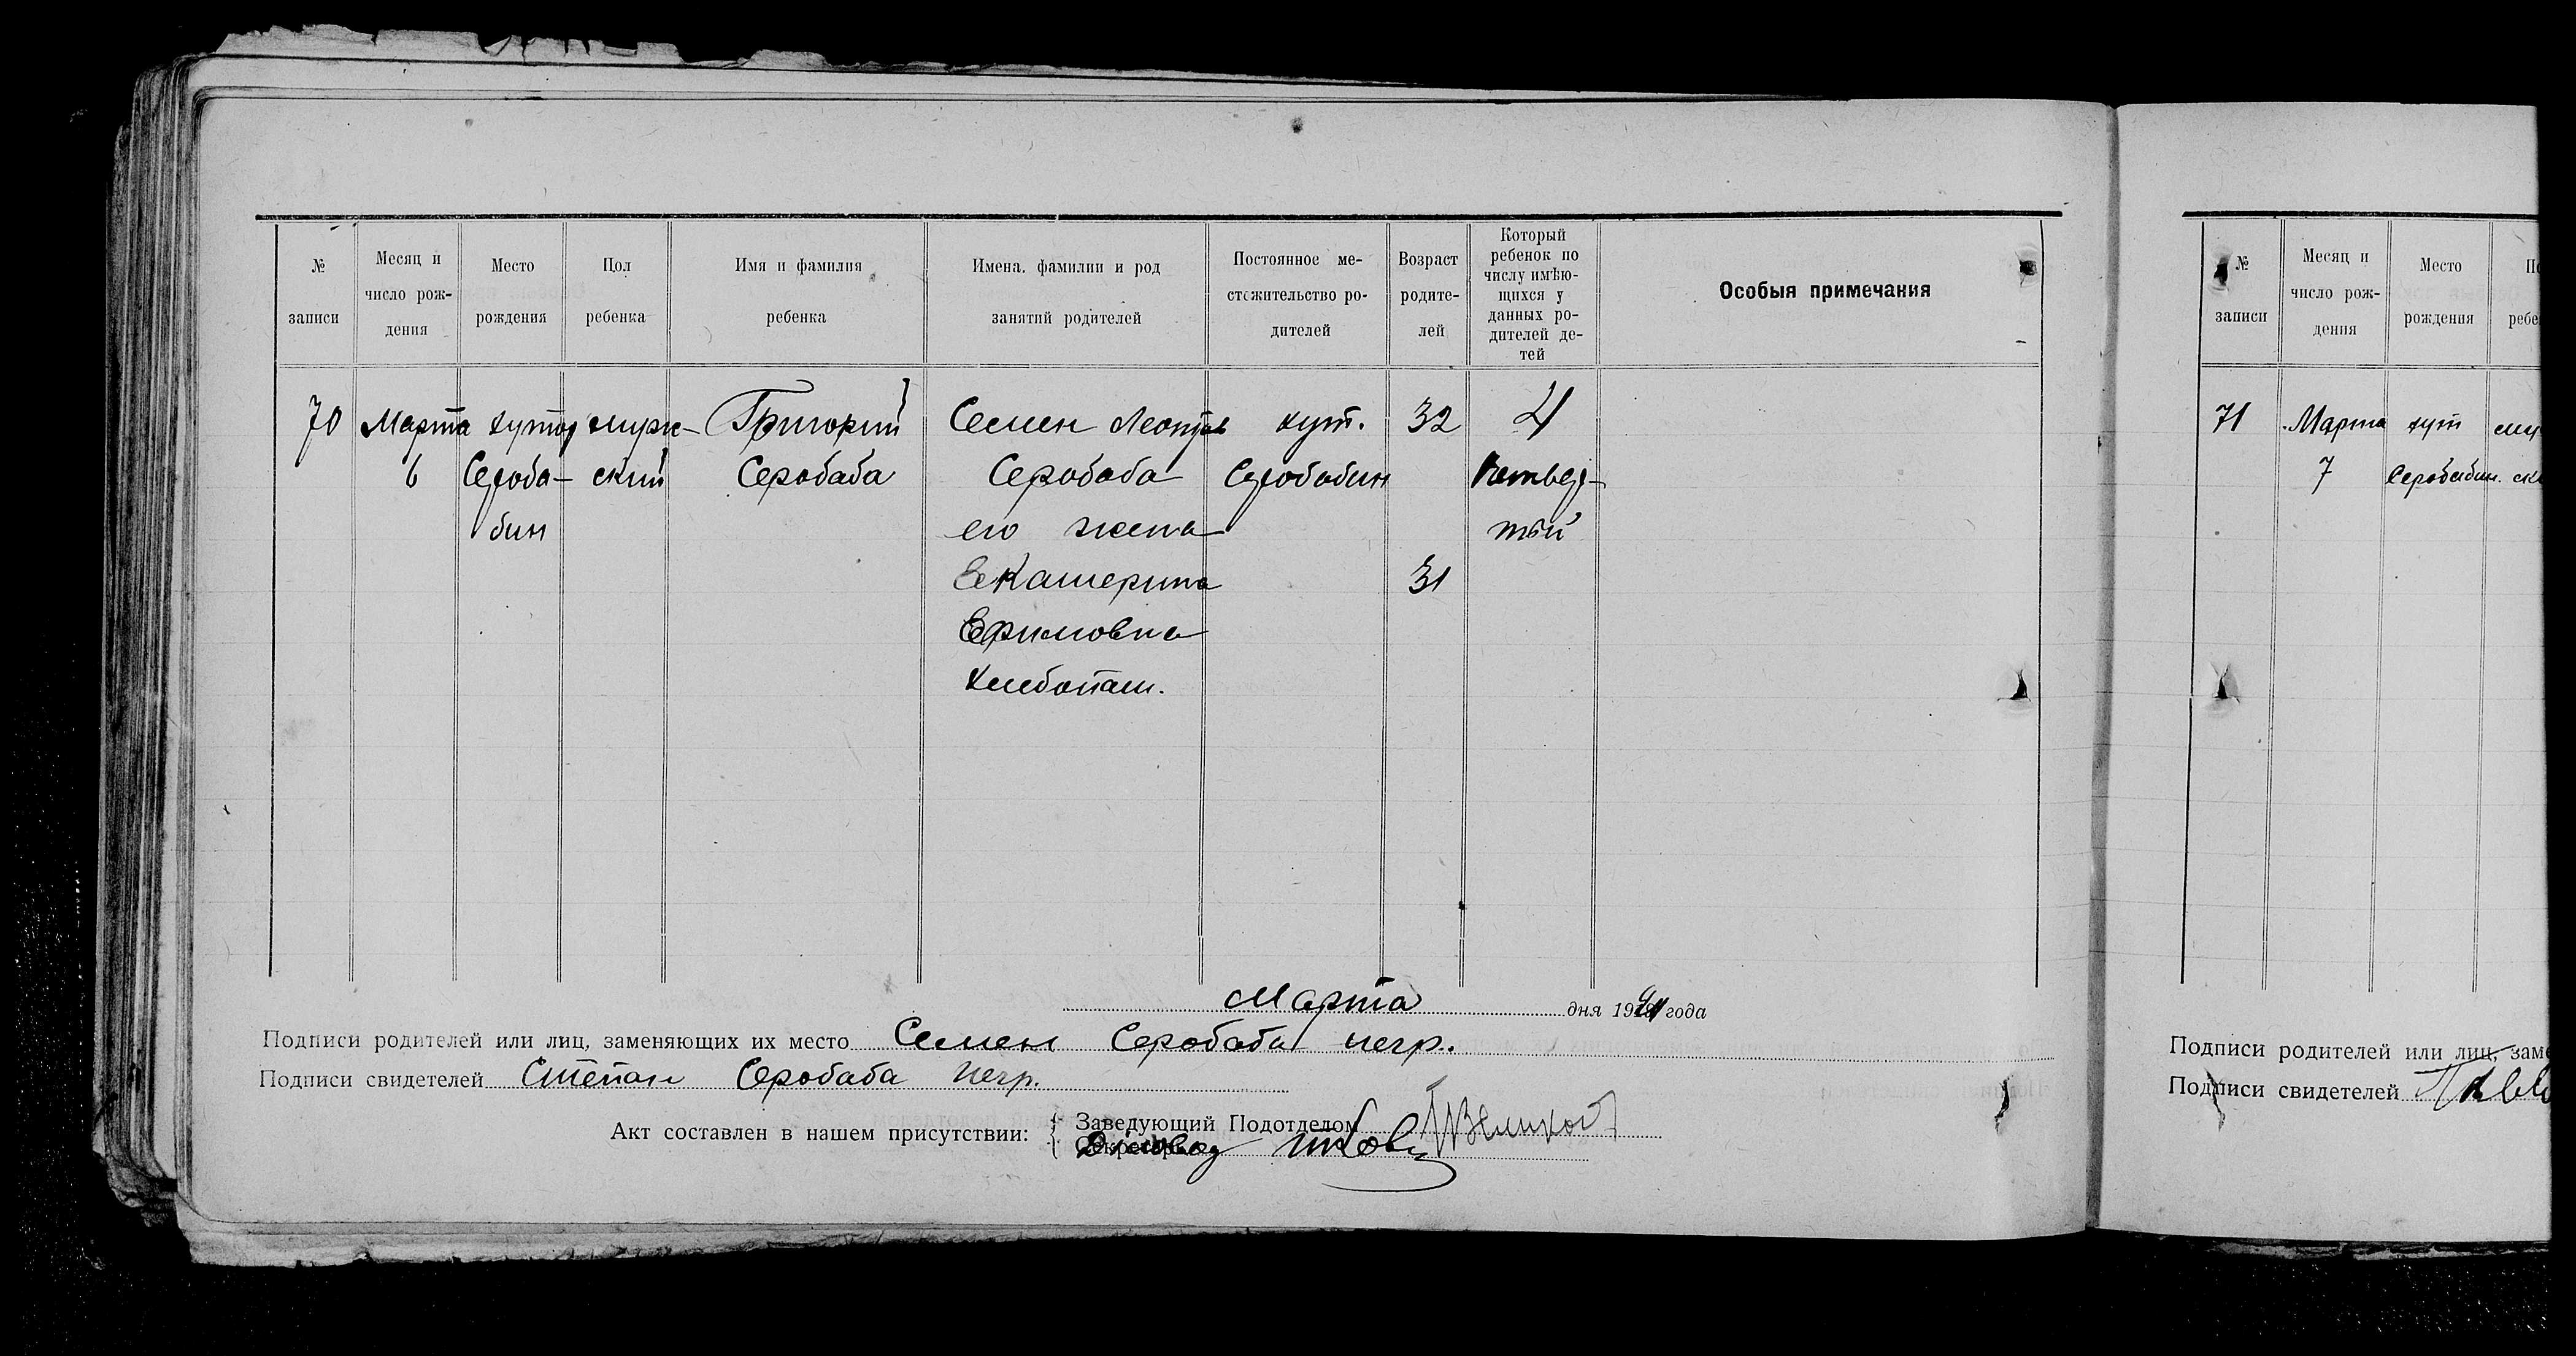 № записи
Месяц и число рождения
Место рождения
Пол ребенка
Имя и фамилия ребенка
Имена, фамилии и род занятий родителей
Постоянное местожительство родителей
Возраст родителей
Который ребенок по числу имѣющихся у данных родителей детей
Особыя примечания
70 Марта хутор мужс- Григорий Семен Леонтьев хут. 32 4
6 Сероба- ский Серобаба Серобаба Серобабин Четвер-
бин его жена тый
Екатерина 31
Ефимовна
Хлебопаш.
Марта дня 1921 года
Подписи родителей или лиц, заменяющих их место Семен Серобаба негр.
Подписи свидетелей Степан Серобаба негр.
Акт составлен в нашем присутствии:
Заведующий Подотделом
Секретарь
№ записи
Месяц и число рождения
Место рождения
71 Марта хут
7 Серобабин.
Подписи родителей или лиц, заме
Подписи свидетелей